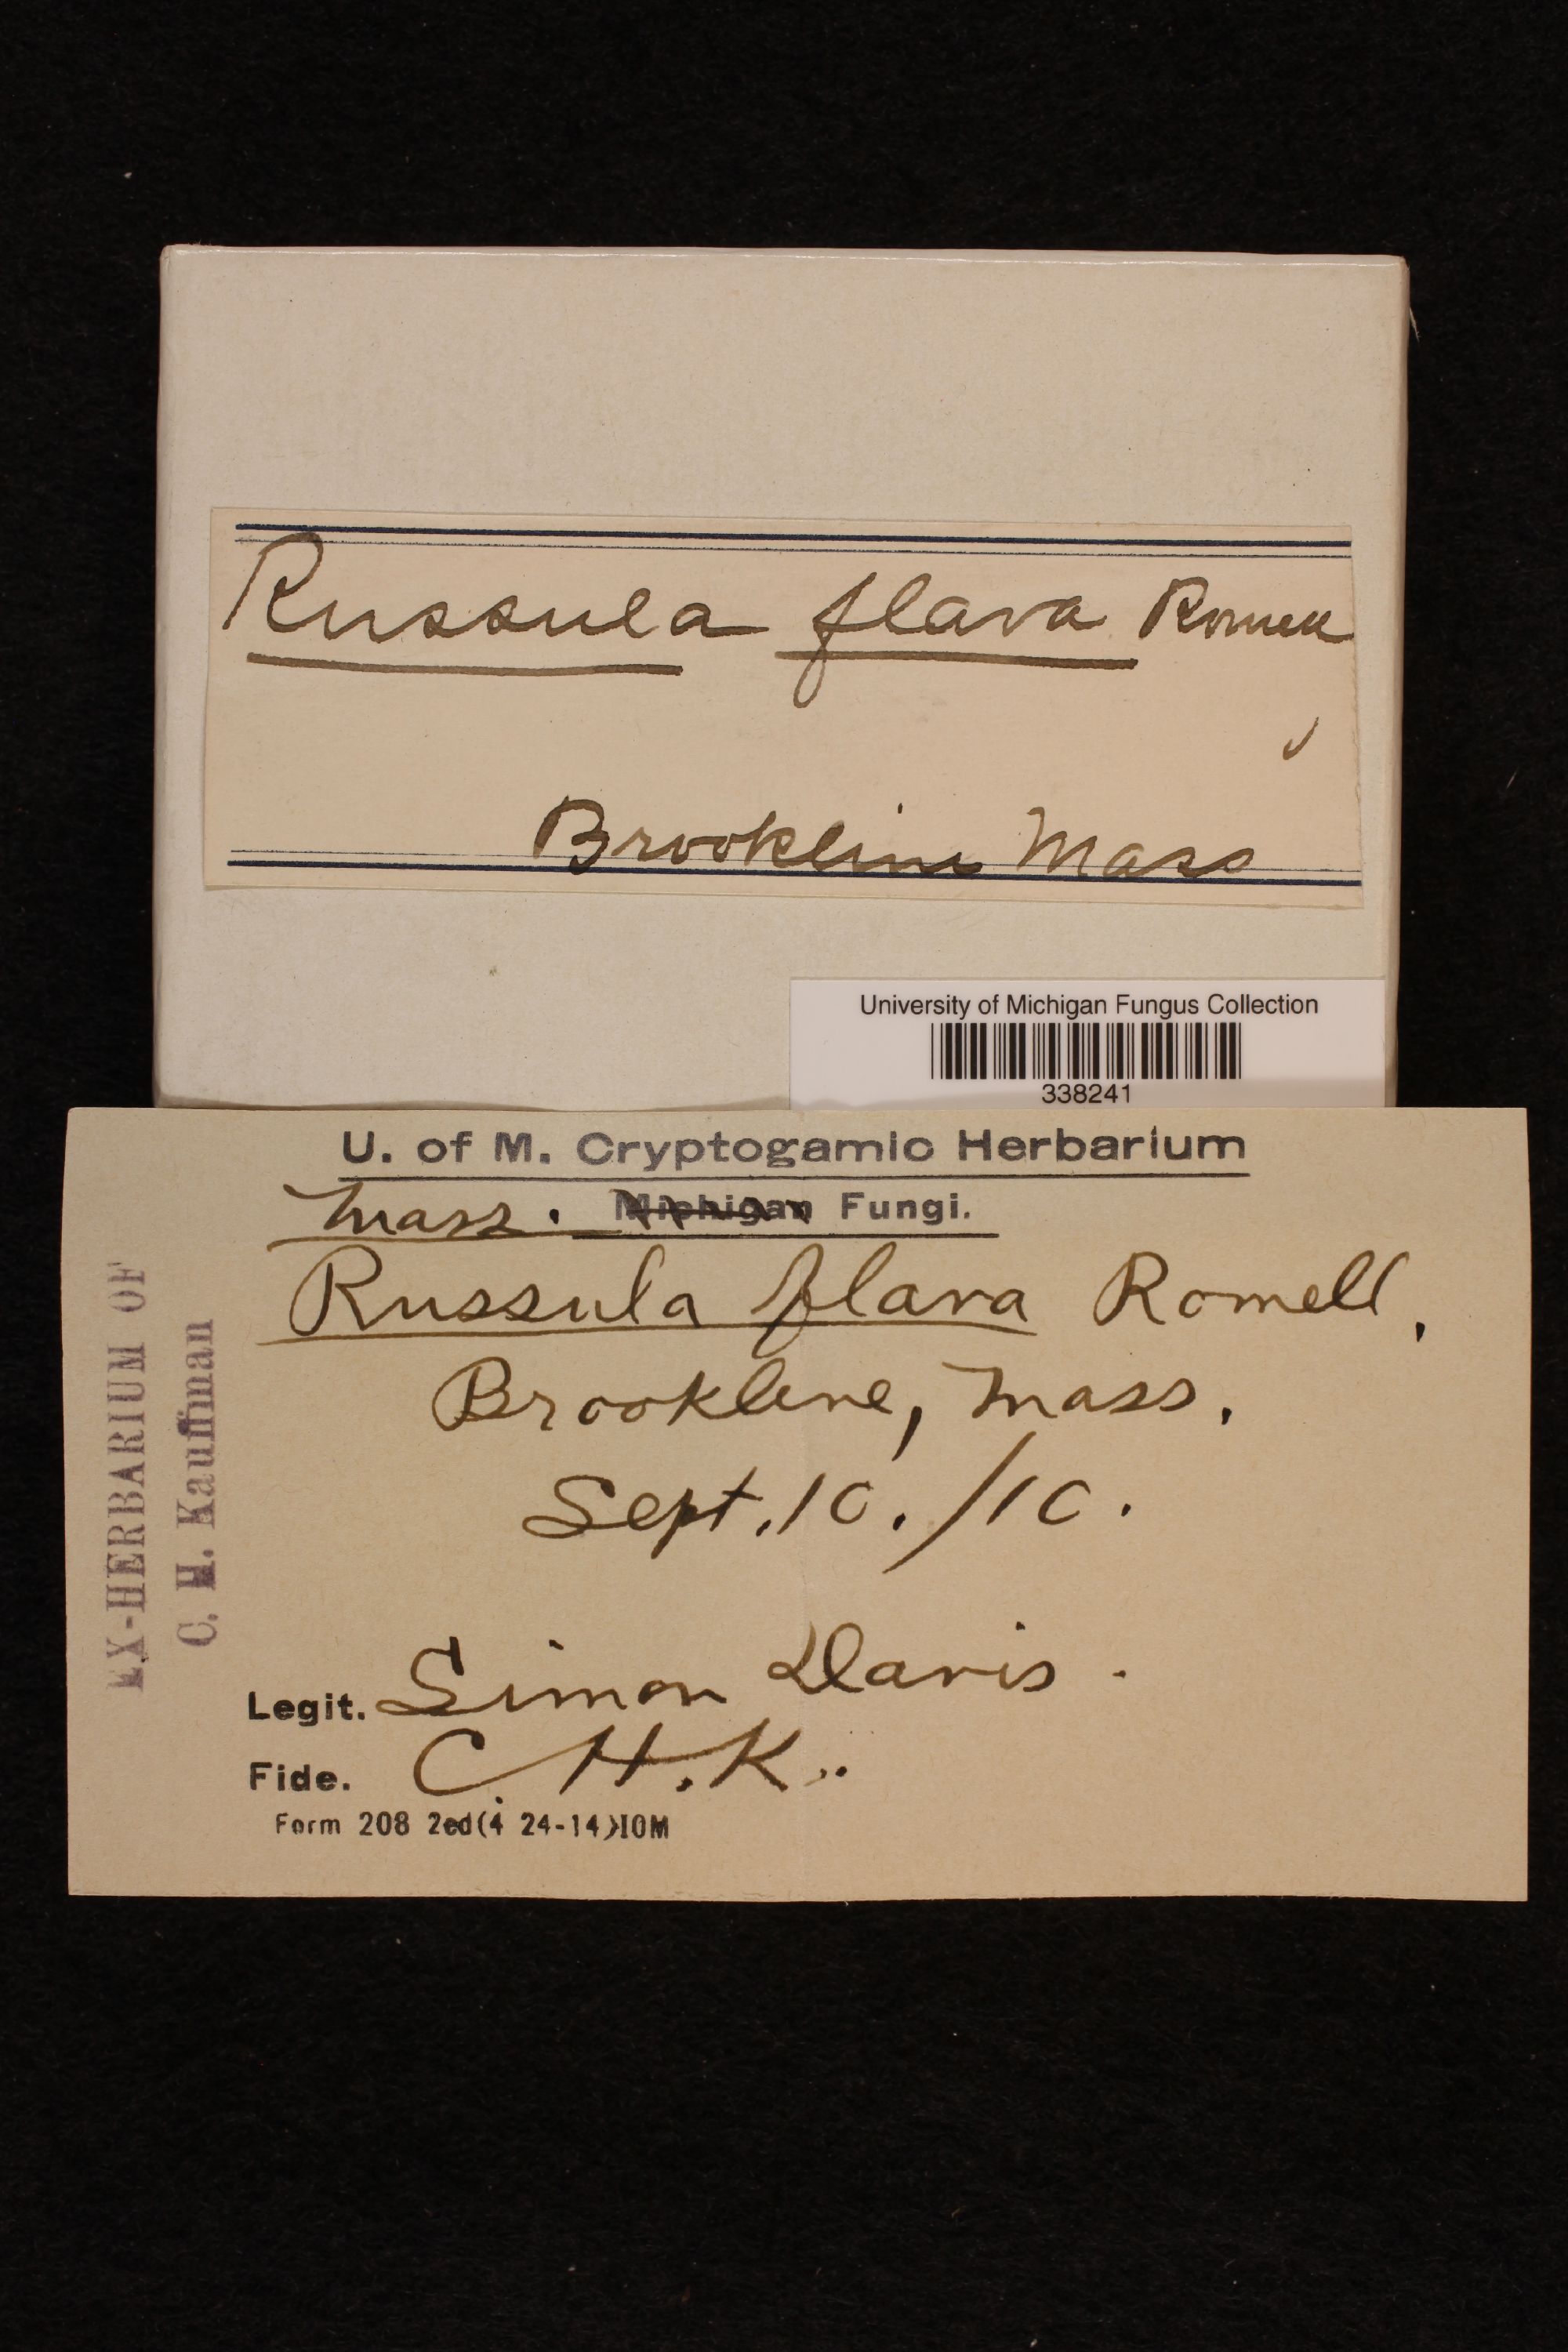 Russula flava Romell
Brookline Mass
University of Michigan Fungus Collection
338241
U. of M. Cryptogamic Herbarium
Mass. Michigan Fungi.
Russula flava Romell,
Brookline, Mass.
Sept. 10. /10.
Legit. Simon Davis.
Fide. C H. K..
Form 208 2ed(4 24-14)10M
EX-HERBARIUM OF
C. H. Kauffman